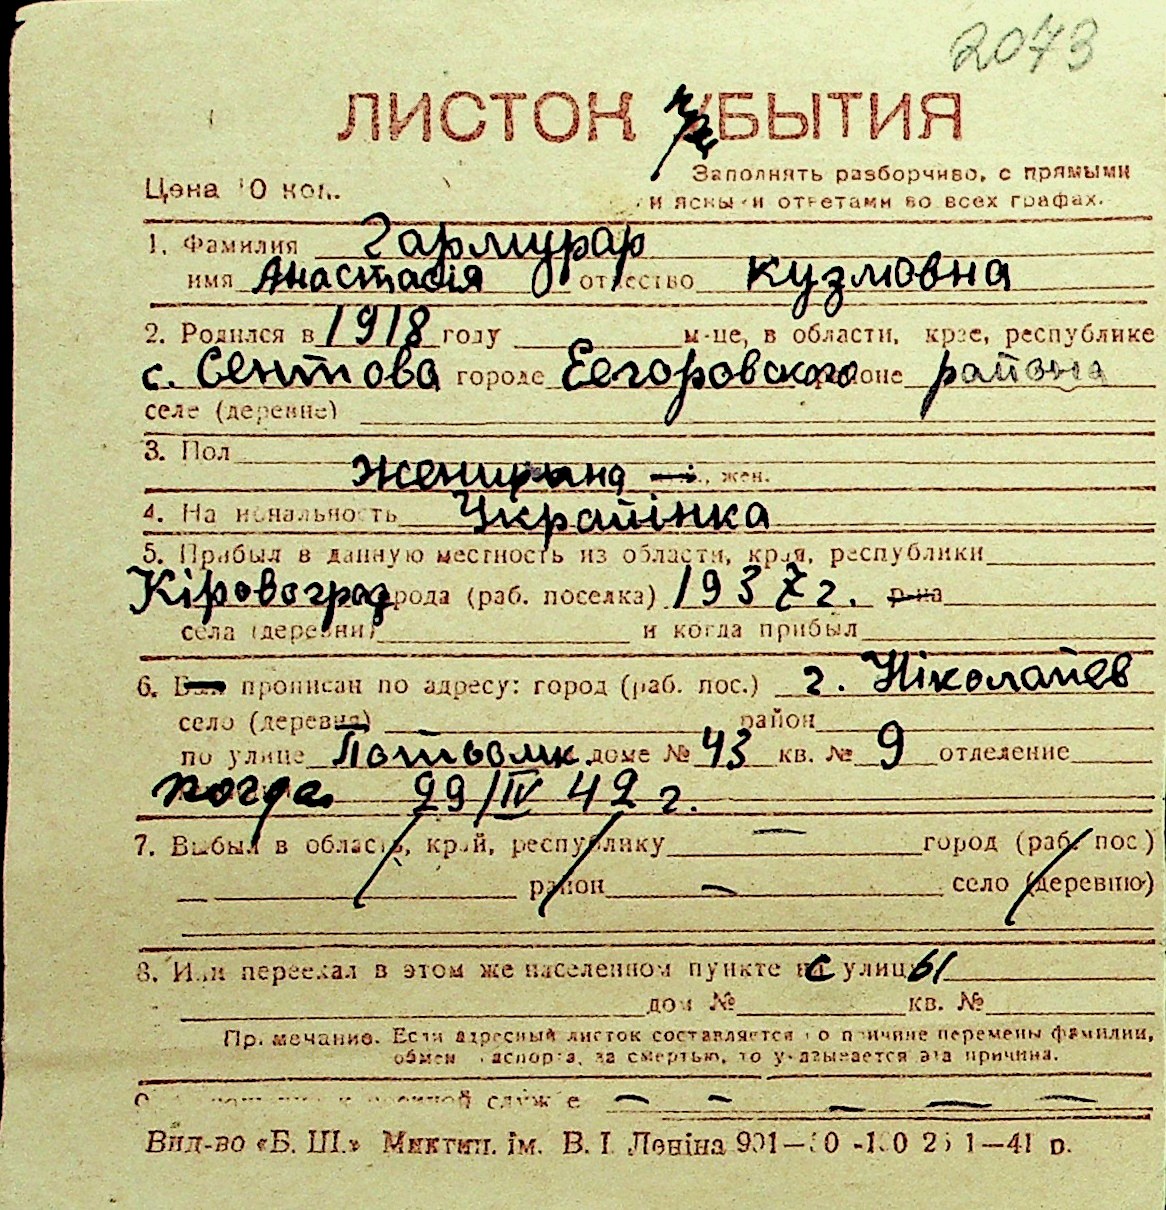 2073
ЛИСТОК БЫТИЯ
Заполнять разборчиво, с прямыми
Цена 10 коп.
и ясными ответами во всех графах.
1. Фамилия Гармурар
имя Анастасія отчество Кузмовна
2. Родился в 1918 году м-це, в области, крае, республике
с. Сентова городе Еегоровского районе района
селе (деревне)
3. Пол женщина жен.
4. Национальность Украінка
5. Прибыл в данную местность из области, края, республики
Кіровоград города (раб. поселка) 1937 г. р-на
села (деревни) и когда прибыл
6. прописан по адресу: город (раб. пос.) г. Ніколайев
село (деревня) район
по улице доме № 43 кв. № 9 отделение
когда 29/IV 42 г.
7. Выбыл в область, край, республику город (раб. пос.)
район село (деревню)
8. Или переехал в этом же населенном пункте с улицы
дом № кв. №
Примечание. Если адресный листок составляется по причине перемены фамилии,
обмена паспорта, за смертью, то указывается эта причина.
службе
Вид-во «Б. Ш.» Миктип. ім. В. І. Леніна 1—41 р.